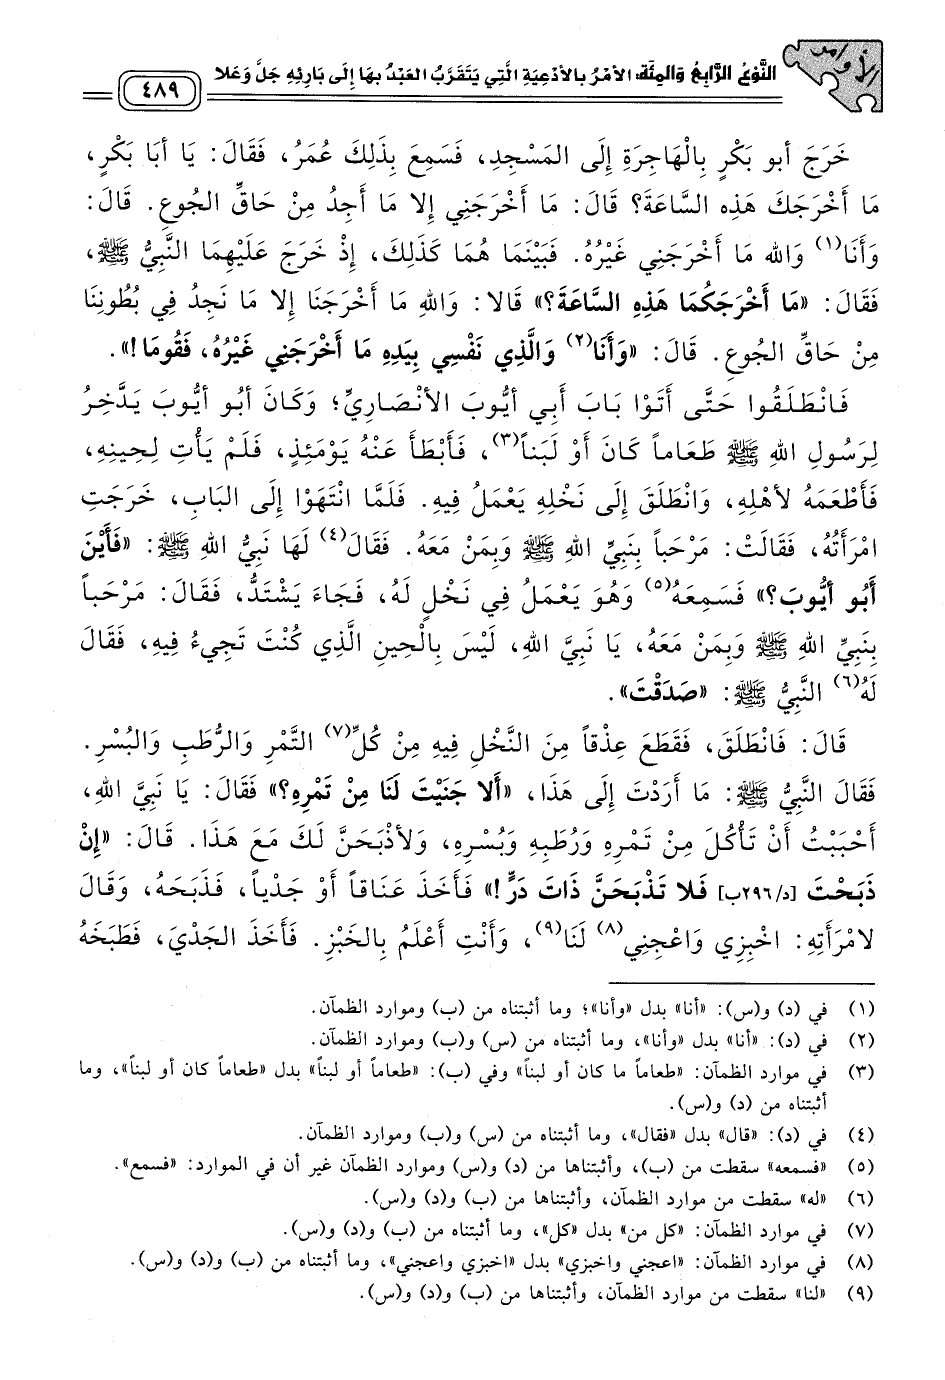 الأوامر
النَّوْعُ الرَّابِعُ وَالمِئَة: الأَمْرُ بالأَدْعِيَةِ الَّتِي يَتَقَرَّبُ العَبْدُ بِهَا إِلَى بَارِئِهِ جَلَّ وَعَلا
٤٨٩
خَرَجَ أبو بَكْرٍ بِالْهَاجِرَةِ إِلَى المَسْجِدِ، فَسَمِعَ بِذَلِكَ عُمَرُ، فَقَالَ: يَا أبَا بَكْرٍ،
مَا أَخْرَجَكَ هَذِهِ السَّاعَةَ؟ قَالَ: مَا أَخْرَجَنِي إلا مَا أَجِدُ مِنْ حَاقِّ الجُوعِ. قَالَ:
وَأَنَا(١) وَاللهِ مَا أَخْرَجَنِي غَيْرُهُ. فَبَيْنَمَا هُمَا كَذَلِكَ، إِذْ خَرَجَ عَلَيْهِمَا النَّبِيُّ ﷺ،
فَقَالَ: «مَا أَخْرَجَكُمَا هَذِهِ السَّاعَةَ؟» قَالا: وَاللهِ مَا أَخْرَجَنَا إلا مَا نَجِدُ فِي بُطُونِنَا
مِنْ حَاقِّ الجُوعِ. قَالَ: «وَأَنَا(٢) وَالَّذِي نَفْسِي بِيَدِهِ مَا أَخْرَجَنِي غَيْرُهُ، فَقُومَا!».
فَانْطَلَقُوا حَتَّى أَتَوْا بَابَ أَبِي أيُّوبَ الأنْصَارِيِّ؛ وَكَانَ أبُو أيُّوبَ يَدَّخِرُ
لِرَسُولِ اللهِ ﷺ طَعَاماً كَانَ أَوْ لَبَناً(٣)، فَأَبْطَأَ عَنْهُ يَوْمَئِذٍ، فَلَمْ يَأْتِ لِحِينِهِ،
فَأَطْعَمَهُ لأهْلِهِ، وَانْطَلَقَ إِلَى نَخْلِهِ يَعْمَلُ فِيهِ. فَلَمَّا انْتَهَوْا إِلَى البَابِ، خَرَجَتِ
امْرَأَتُهُ، فَقَالَتْ: مَرْحَباً بِنَبِيِّ اللهِ ﷺ وَبِمَنْ مَعَهُ. فَقَالَ(٤) لَهَا نَبِيُّ اللهِ ﷺ: «فَأَيْنَ
أَبُو أَيُّوبَ؟» فَسَمِعَهُ(٥) وَهُوَ يَعْمَلُ فِي نَخْلٍ لَهُ، فَجَاءَ يَشْتَدُّ، فَقَالَ: مَرْحَباً
بِنَبِيِّ اللهِ ﷺ وَبِمَنْ مَعَهُ، يَا نَبِيَّ اللهِ، لَيْسَ بِالْحِينِ الَّذِي كُنْتَ تَجِيءُ فِيهِ، فَقَالَ
لَهُ(٦) النَّبِيُّ ﷺ: «صَدَقْتَ».
قَالَ: فَانْطَلَقَ، فَقَطَعَ عِذْقاً مِنَ النَّخْلِ فِيهِ مِنْ كُلٍّ(٧) التَّمْرِ وَالرُّطَبِ وَالبُسْرِ.
فَقَالَ النَّبِيُّ ﷺ: مَا أَرَدْتَ إِلَى هَذَا، «أَلا جَنَيْتَ لَنَا مِنْ تَمْرِهِ؟» فَقَالَ: يَا نَبِيَّ اللهِ،
أَحْبَبْتُ أَنْ تَأْكُلَ مِنْ تَمْرِهِ وَرُطَبِهِ وَبُسْرِهِ، وَلأذْبَحَنَّ لَكَ مَعَ هَذَا. قَالَ: «إِنْ
ذَبَحْتَ [د/٢٩٦ب] فَلا تَذْبَحَنَّ ذَاتَ دَرٍّ!» فَأَخَذَ عَنَاقاً أَوْ جَدْياً، فَذَبَحَهُ، وَقَالَ
لامْرَأَتِهِ: اخْبِزِي وَاعْجِنِي(٨) لَنَا(٩)، وَأَنْتِ أَعْلَمُ بِالخَبْزِ. فَأَخَذَ الجَدْيَ، فَطَبَخَهُ
(١) في (د) و(س): «أنا» بدل «وأنا»؛ وما أثبتناه من (ب) وموارد الظمآن.
(٢) في (د): «أنا» بدل «وأنا»، وما أثبتناه من (س) و(ب) وموارد الظمآن.
(٣) في موارد الظمآن: «طعاماً ما كان أو لبناً» وفي (ب): «طعاماً أو لبناً» بدل «طعاماً كان أو لبناً»، وما
أثبتناه من (د) و(س).
(٤) في (د): «قال» بدل «فقال»، وما أثبتناه من (س) و(ب) وموارد الظمآن.
(٥) «فسمعه» سقطت من (ب)، وأثبتناها من (د) و(س) وموارد الظمآن غير أن في الموارد: «فسمع».
(٦) «له» سقطت من موارد الظمآن، وأثبتناها من (ب) و(د) و(س).
(٧) في موارد الظمآن: «كل من» بدل «كل»، وما أثبتناه من (ب) و(د) و(س).
(٨) في موارد الظمآن: «اعجني واخبزي» بدل «اخبزي واعجني»، وما أثبتناه من (ب) و(د) و(س).
(٩) «لنا» سقطت من موارد الظمآن، وأثبتناها من (ب) و(د) و(س).